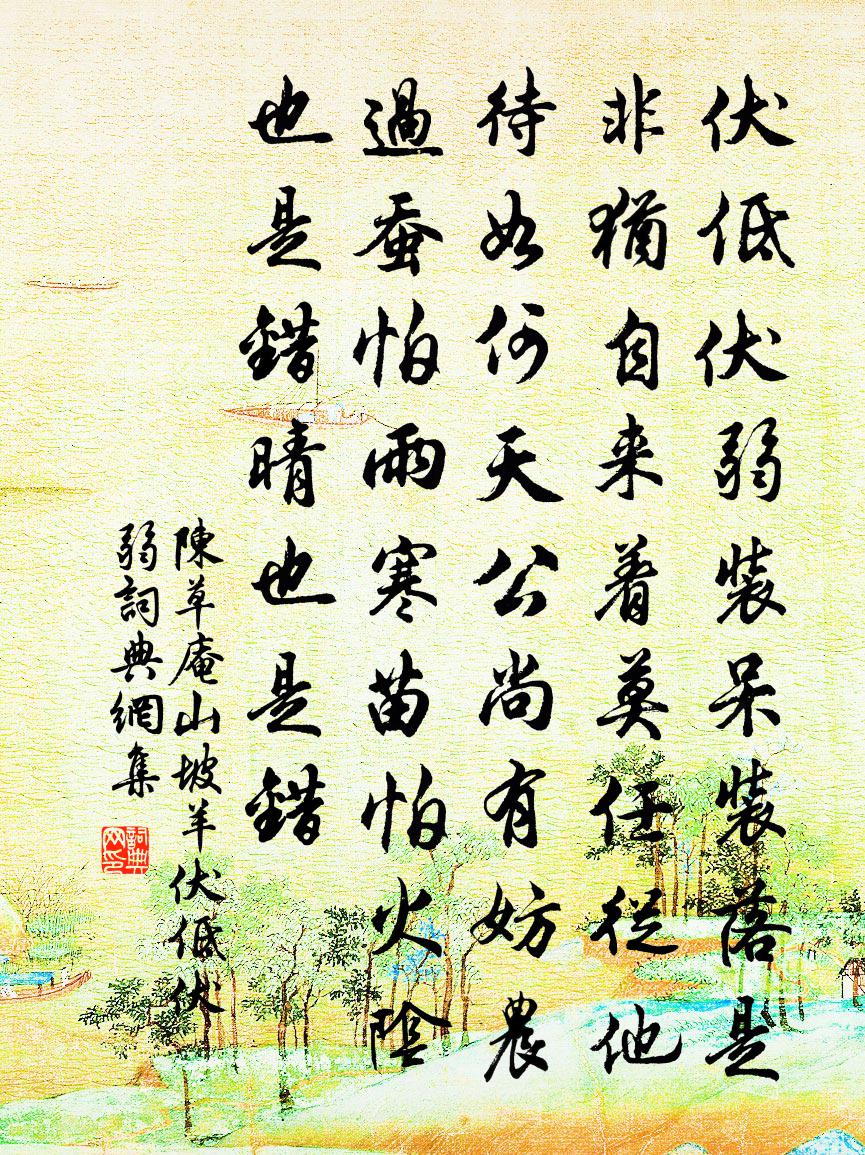 伏低伏弱装呆装落是
非犹自来着莫任從他
待如何天公尚有妨農
過蚕怕雨寒苗怕火陰
也是錯晴也是錯
陳草庵山坡羊伏低伏
弱詞典網集
詞典网印